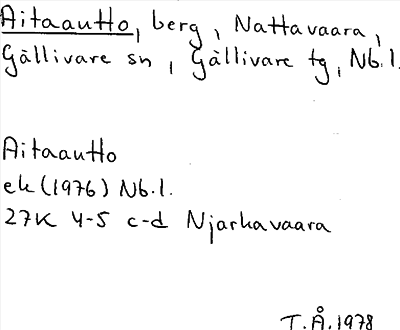 Aitaautto, berg, Nattavaara,
Gällivare sn, Gällivare tg, Nb.l.
Aitaautto
ek (1976) Nb.l.
27K 4-5 c-d Njarkavaara
T.Å. 1978